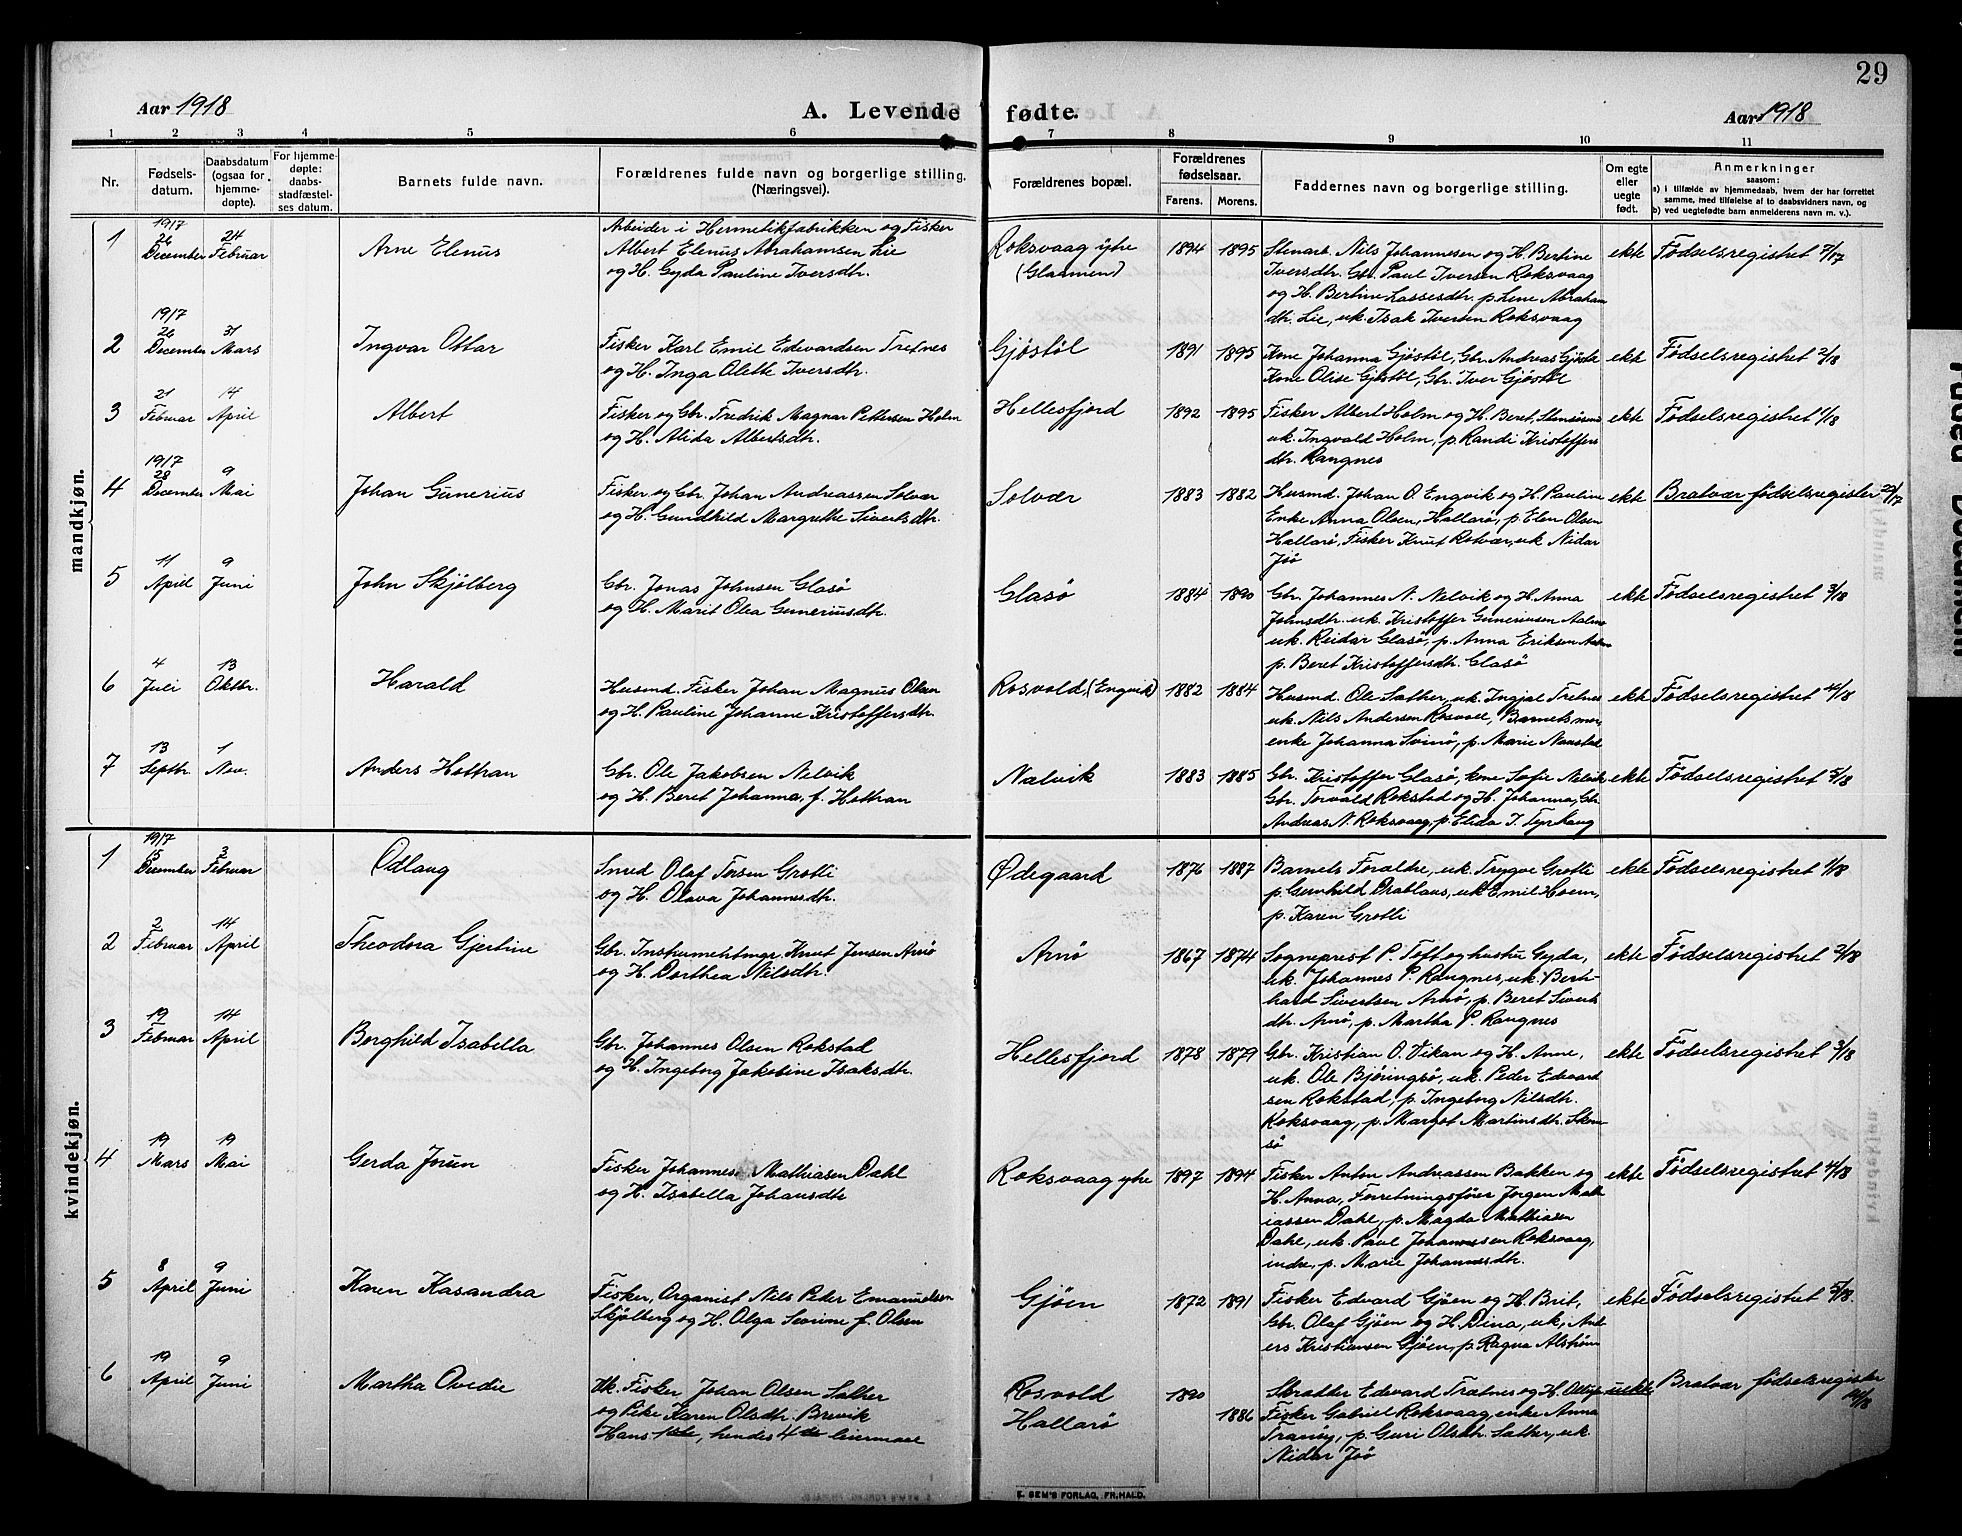 29
Aar 1918
A. Levende fødte.
Aar 1918
1 2 3 4 5 6 7 8 9 10 11
Nr.
Fødsels-
datum.
Daabsdatum
(ogsaa for
hjemme-
døpte).
For hjemme-
døpte:
daabs-
stadfæstel-
ses datum.
Barnets fulde navn.
Forældrenes fulde navn og borgerlige stilling.
(Næringsvei).
Forældrenes bopæl.
Forældrenes
fødselsaar.
Farens. Morens.
Faddernes navn og borgerlige stilling.
Om egte
eller
uegte
født.
Anmerkninger
saasom:
a) i tilfælde av hjemmedaab, hvem der har forrettet
samme, med tilføielse av to daabsvidners navn, og
b) ved uegtefødte barn anmelderens navn m. v.).
mandkjøn.
1
1917
26
December
24
Februar
Arne Elenus
Arbeider i Hermetikfabrikken og Fisker
Albert Elenus Abrahamsen Lie
og H. Gyda Pauline Iversdtr.
Roksvaag ytre
1894 1895
Stenarb. Nils Johannesen og H. Bertine
Iversdtr. Gbr. Paul Iversen Roksvaag
og H. Bertine Lassesdtr. p. Lene Abraham
dtr. Lie, uk. Isak Iversen Roksvaag
ekte
Fødselsregistret 7/17
2
1917
26
December
31
Mars
Ingvar Ottar
Fisker Karl Emil Edevardsen Tretnes
og H. Inga Olette Iversdtr.
Gjøstøl
1891 1895
Kone Johanna Gjøstøl, Gbr. Andreas Gjøstøl
Kone Olise Gjøstøl, Gbr. Iver Gjøstøl
ekte
Fødselsregistret 2/18
3
21
Februar
14
April
Albert
Fisker og Gbr. Fredrik Magnar Pettersen Holm
og H. Alida Albertsdtr.
Hellesfjord
1892 1895
Fisker Albert Holm og H. Beret,
uk. Ingvald Holm, p. Randi Kristoffers
dtr. Rangnes
ekte
Fødselsregistret 1/18
4
1917
28
December
9
Mai
Johan Gunerius
Fisker og Gbr. Johan Andreassen Solvær
og H. Gundhild Margrethe Sivertsdtr.
Solvær
1883 1882
Husmd. Johan O. Engvik og H. Pauline
Enke Anna Olsen, Hallarø, p. Elen Olsen
Hallarø, Fisker Knut Rotvær, uk Nidar
Jøø
ekte
Bratvær fødselsregister 22/17
5
11
April
9
Juni
John Skjølberg
Gbr. Jonas Johnsen Glasø
og H. Marit Olea Guneriusdtr.
Glasø
1884 1890
Gbr. Johannes N. Nelvik og H. Anna
Johnsdtr. uk. Kristoffer Guneriusen
uk. Reidar Glasø, p. Anna Eriksen
p. Beret Kristoffersdtr. Glasø
ekte
Fødselsregistret 3/18
6
4
Juli
13
Oktbr.
Harald
Husmd. Fisker Johan Magnus Olsen
og H. Pauline Johanne Kristoffersdtr.
Rosvold (Engvik)
1882 1884
Husmd. Ole Sæther, uk. Ingjal Tretnes
uk. Nils Andersen Rosvoll, Barnets mor,
enke Johanna Svinø, p. Marie Naustad
ekte
Fødselsregistret 4/18
7
13
Septbr.
1
Nov.
Anders Hottran
Gbr. Ole Jakobsen Nelvik
og H. Beret Johanna, f. Hottran
Nalvik
1883 1885
Gbr. Kristoffer Glasø, kone Sofie Nelvik
Gbr. Torvald Rokstad og H. Johanna, Gbr.
Andreas N. Roksvaag, p. Elida I. Tyrhaug
ekte
Fødselsregistret 5/18
kvindekjøn.
1
1917
15
December
3
Februar
Odlaug
Smed Olaf Torsen Grotli
og H. Olava Johannesdtr.
Ødegaard
1876 1887
Barnets Forældre, uk. Trygve Grotli
p. Gunhild Drablaus, uk Emil Hoem,
p. Karen Grotli
ekte
Fødselsregistret 1/18
2
2
Februar
14
April
Theodora Gjertine
Gbr. Instrumentmgr. Knut Jensen Arnø
og H. Dorthea Nilsdtr.
Arnø
1867 1874
Sogneprest P. Toft og hustru Gyda,
uk. Johannes P. Rangnes, uk. Bern-
hard Sivertsen Arnø, p. Beret Siverts
dtr. Arnø, p. Martha P. Rangnes
ekte
Fødselsregistret 2/18
3
19
Februar
14
April
Borghild Isabella
Gbr. Johannes Olsen Rokstad
og H. Ingeborg Jakobine Isaksdtr.
Hellesfjord
1878 1879
Gbr. Kristian O. Vikan og H. Anne,
uk. Ole Bjøringsø, uk. Peder Edvard
sen Rokstad, p. Ingeborg Nilsdtr.
Roksvaag, p. Margot Martinsdtr. Skon
sø
ekte
Fødselsregistret 3/18
4
19
Mars
19
Mai
Gerda Jorun
Fisker Johannes Mathiasen Dahl
og H. Isabella Johansdtr
Roksvaag ytre
1897 1894
Fisker Anton Andreassen Bakken og
H. Anna, Forretningsfører Jørgen Mat
iassen Dahl, p. Magda Mathiasen
Dahl, uk. Paul Johannessen Roksvaag,
indre, p. Marie Johannesdtr.
ekte
Fødselsregistret 4/18
5
8
April
9
Juni
Karen Kasandra
Fisker, Organist Nils Peder Emanuelsen
Skjølberg og H. Olga Sevrine f. Olsen
Gjøen
1872 1891
Fisker Edvard Gjøen og H. Brit,
Gbr. Olaf Gjøen og H. Dina, uk. And
ers Kristiansen Gjøen, p. Ragna Alstrøm
ekte
Fødselsregistret 5/18.
6
19
April
9
Juni
Martha Ovedie
Uk. Fisker Johan Olsen Sæther
og Pike Karen Olsdtr. Brevik
Hans 1ste, hendes 4de leiermaal
Rosvold
Hallarø
1890
1886
Skrædder Edvard Trætnes og H.
Fisker Gabriel Roksvaag, enke Anna
p. Guri Olsdtr. Sæther, uk.
Nidar Jøø
uekte
Bratvær fødselsregister
14/18
E. SEM'S FORLAG, FR.HALD.